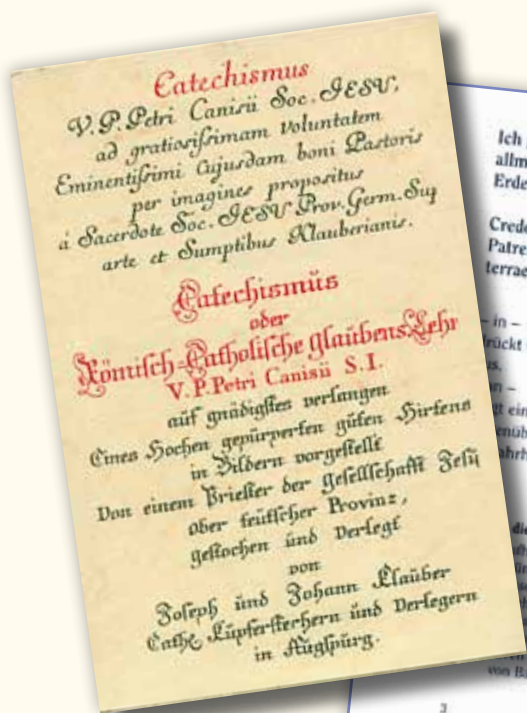 Catechismus
V. P. Petri Canisii Soc. IESV,
ad gratiosissimam Voluntatem
Eminentissimi Cujusdam boni Pastoris
per imagines propositus
á Sacerdote Soc. IESV Prov. Germ. Sup
arte et Sumptibus Klauberianis.
Catechismus
oder
Römisch-Catholische Glaubens Lehr
V. P. Petri Canisii S. I.
auf gnädigstes verlangen
Eines Hochen gepurperten guten Hirtens
in Bildern vorgestellt
Von einem Priester der Gesellschafft Jesu
ober teutscher Provinz,
gestochen und Verlegt
von
Joseph und Johann Klauber
Cathl Kupferstechern und Verlegern
in Augspurg.
Ich
allm
Erde
Cred
Patre
terrae
– in –
rückt
us.
n –
gt ein
enüb
ahrh
die
von B
3